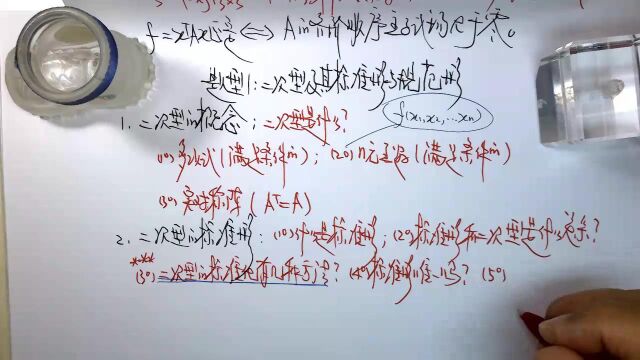 f = xᵀAx正定 ⇔ A的各阶顺序主子式均大于零。
题型1:二次型及其标准形与规范形
1. 二次型的概念:二次型是什么? f(x₁,x₂,…xₙ)
(1)多项式(满足条件的);(2)n元函数(满足条件的)
(3)实对称阵(Aᵀ=A)
2. 二次型的标准形:(1)什么是标准形;(2)标准形和二次型是什么关系?
*** (3)二次型的标准化有几种方法?(4)标准形唯一吗?(5)